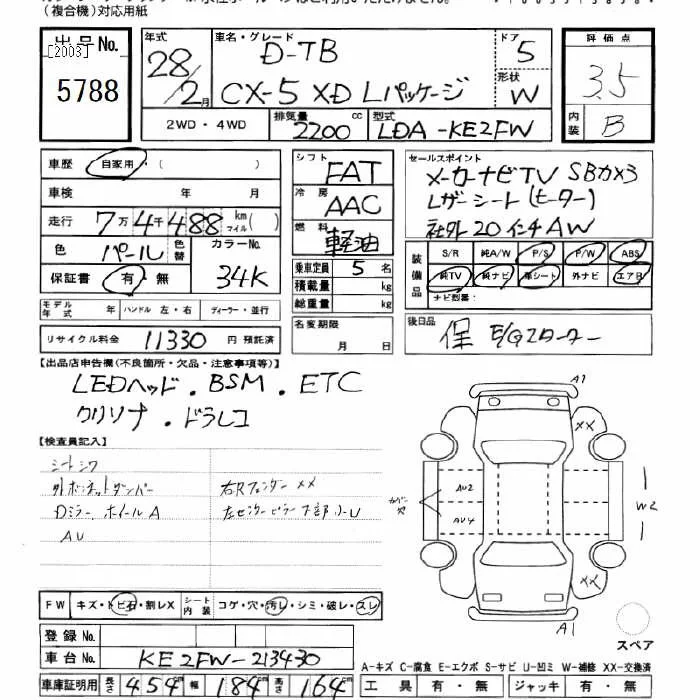 (複合機)対応用紙
出品No.
[2003]
5788
年式
28/2月
車名・グレード
D-TB
CX-5 XD Lパッケージ
ドア
5
形状
W
評価点
3.5
内装
B
2WD・4WD
排気量
2200cc
型式
LDA-KE2FW
車歴
自家用・( )
車検 年 月
走行 7万4千488km マイル( )
色 パール 色替
カラーNo. 34K
保証書 有・無
モデル年式 年 ハンドル 左・右 ディーラー・並行
リサイクル料金 11330円 預託済
シフト FAT
冷房 AAC
燃料 軽油
乗車定員 5名
積載量 kg
総重量 kg
名変期限
月 日
セールスポイント
メーカーナビTV SBカメラ
レザーシート(ヒーター)
社外20インチAW
装備品
S/R 純A/W P/S P/W ABS
純TV 純ナビ 革シート 外ナビ エアB
ナビ型番:
後日品
保 E/Gスターター
【出品店申告欄(不良箇所・欠品・注意事項等)】
LEDヘッド. BSM. ETC
クリソナ. ドラレコ
【検査員記入】
シートシワ
外ボンネットダンパー
右Rフェンダー XX
Dミラー. ホイールA
左センターピラー下部小U
AU
A1
XX
AU2
AU4
カバー穴
W2
XX
A1
スペア
FW キズ・トビ石・割レX
シート内装 コゲ・穴・汚レ・シミ・破レ・スレ
登録No.
車台No. KE2FW-213430
車庫証明用 長さ 454 幅 184 高さ 164
A-キズ C-腐食 E-エクボ S-サビ U-凹ミ W-補修 XX-交換済
工具 有・無 ジャッキ 有・無